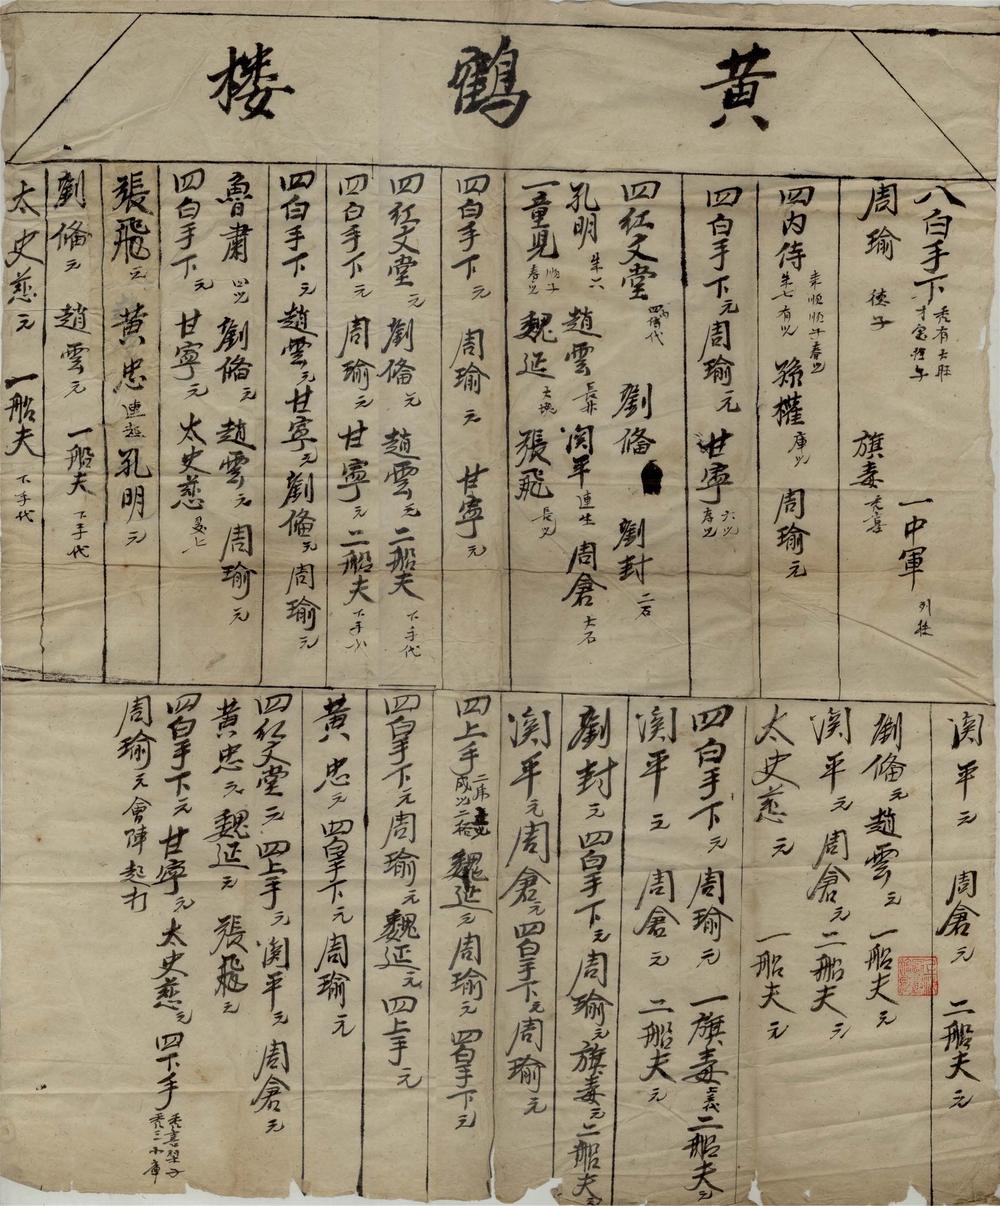 黄鶴楼
八白手下
周瑜 德子 旗毒
一中軍
四内侍 孫權 周瑜元
四白手下元周瑜元甘寧
四红文堂 劉偹 劉封 二石
孔明 朱六 趙雲 関平 連生 周倉 大石
一童児 魏延 張飛
四白手下元 周瑜元 甘寧元
四红文堂元 劉偹元 趙雲元 二船夫 下手代
四白手下元 周瑜元 甘寧元 二船夫
四白手下元趙雲元甘寧元劉偹元周瑜元
魯肅 劉偹元 趙雲元 周瑜元
四白手下元 甘寧元 太史慈
張飛元 黄忠 孔明元
劉偹元 趙雲元 一船夫 下手代
太史慈元 一船夫 下手代
関平元 周倉元 二船夫元
劉偹元趙雲元 一船夫元
関平元 周倉元二船夫元
太史慈元 一船夫元
四白手下元 周瑜元 一旗毒 二船夫元
関平元 周倉元 二船夫元
劉封元四白手下元周瑜元旗毒元二船夫元
関平元周倉元四白手下元周瑜元
四上手 魏延元周瑜元四白手下元
四白手下元周瑜元魏延元四上手元
黄忠元四白手下元周瑜元
四红文堂元四上手元関平元周倉元
黄忠元魏延元 張飛元
四白手下元甘寧元太史慈元四下手
周瑜元會陣起打